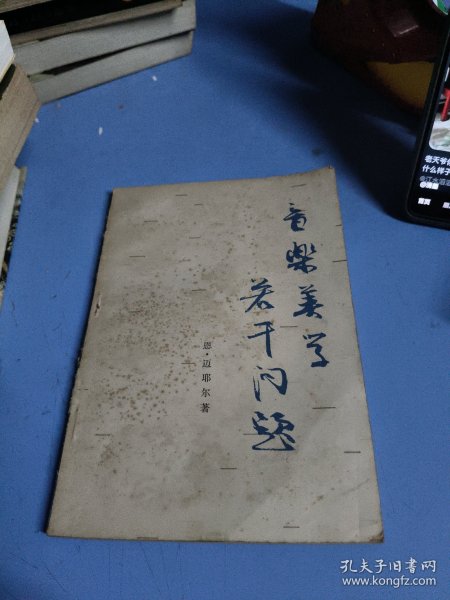 音樂美学
若干问题
恩·迈耶尔著
老天爷
什么样子
首页
孔夫子旧书网
www.kongfz.com